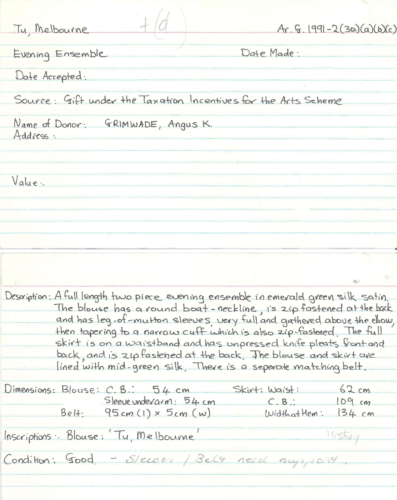 Tu, Melbourne +(d) Ar. G. 1991-2(3a)(a)(b)(c)
Evening Ensemble Date Made:
Date Accepted:
Source: Gift under the Taxation Incentives for the Arts Scheme
Name of Donor: GRIMWADE, Angus K.
Address:
Value:
Description: A full length two piece evening ensemble in emerald green silk satin.
The blouse has a round boat-neckline, is zip fastened at the back
and has leg-of-mutton sleeves, very full and gathered above the elbow,
then tapering to a narrow cuff which is also zip-fastened. The full
skirt is on a waistband and has unpressed knife pleats front and
back, and is zip fastened at the back. The blouse and skirt are
lined with mid-green silk. There is a seperate matching belt.
Dimensions: Blouse: C.B.: 54 cm Skirt: Waist: 62 cm
Sleeve underarm: 54 cm C.B.: 109 cm
Belt: 95cm (l) × 5cm (w) Width at Hem: 134 cm
Inscriptions: Blouse: 'Tu, Melbourne'
Condition: Good. - Sleeves / Belt need support.